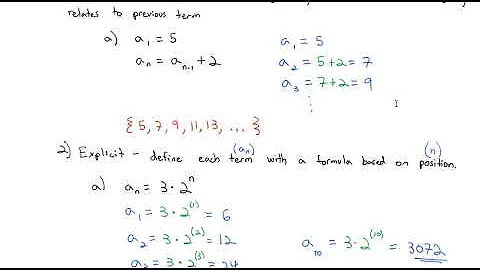 relates to previous term
a) a₁ = 5
aₙ = aₙ₋₁ + 2
a₁ = 5
a₂ = 5+2 = 7
a₃ = 7+2 = 9
⋮
{5, 7, 9, 11, 13, ... }
2) Explicit - define each term (aₙ) with a formula based on position. (n)
a) aₙ = 3 · 2ⁿ
a₁ = 3 · 2⁽¹⁾ = 6
a₂ = 3 · 2⁽²⁾ = 12
a₃ = 3 · 2⁽³⁾ = 24
a₁₀ = 3 · 2⁽¹⁰⁾ = 3072